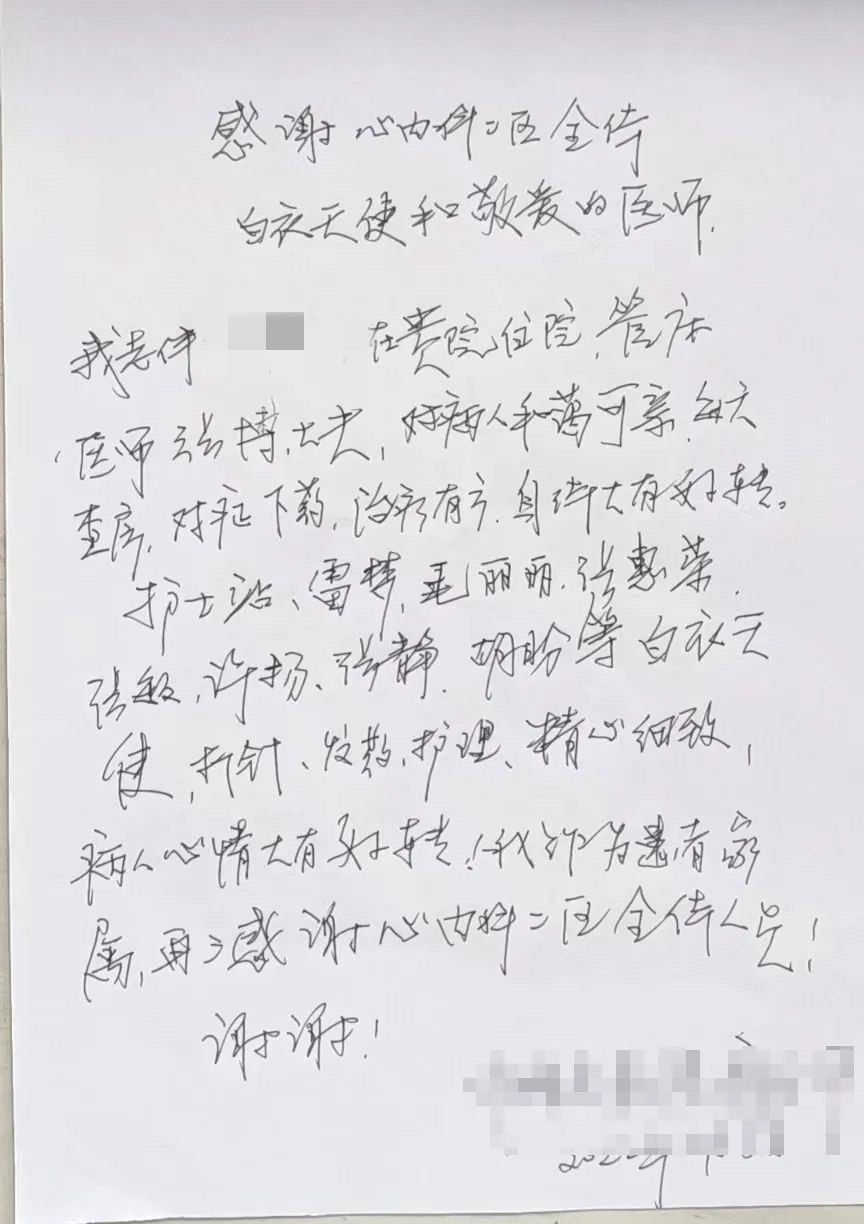 感谢心内科二区全体
白衣天使和敬爱的医师.
我老伴 在贵院住院,管床
医师张博大夫,对病人和蔼可亲.每天
查房,对症下药,治疗有方.身体大有好转。
护士站、雷梦,毛丽丽.张惠荣.
张敏,许扬、张静.胡盼等白衣天
使,打针、发药,护理、精心细致,
病人心情大有好转!我作为患者家
属,再三感谢心内科二区全体人员!
谢谢!